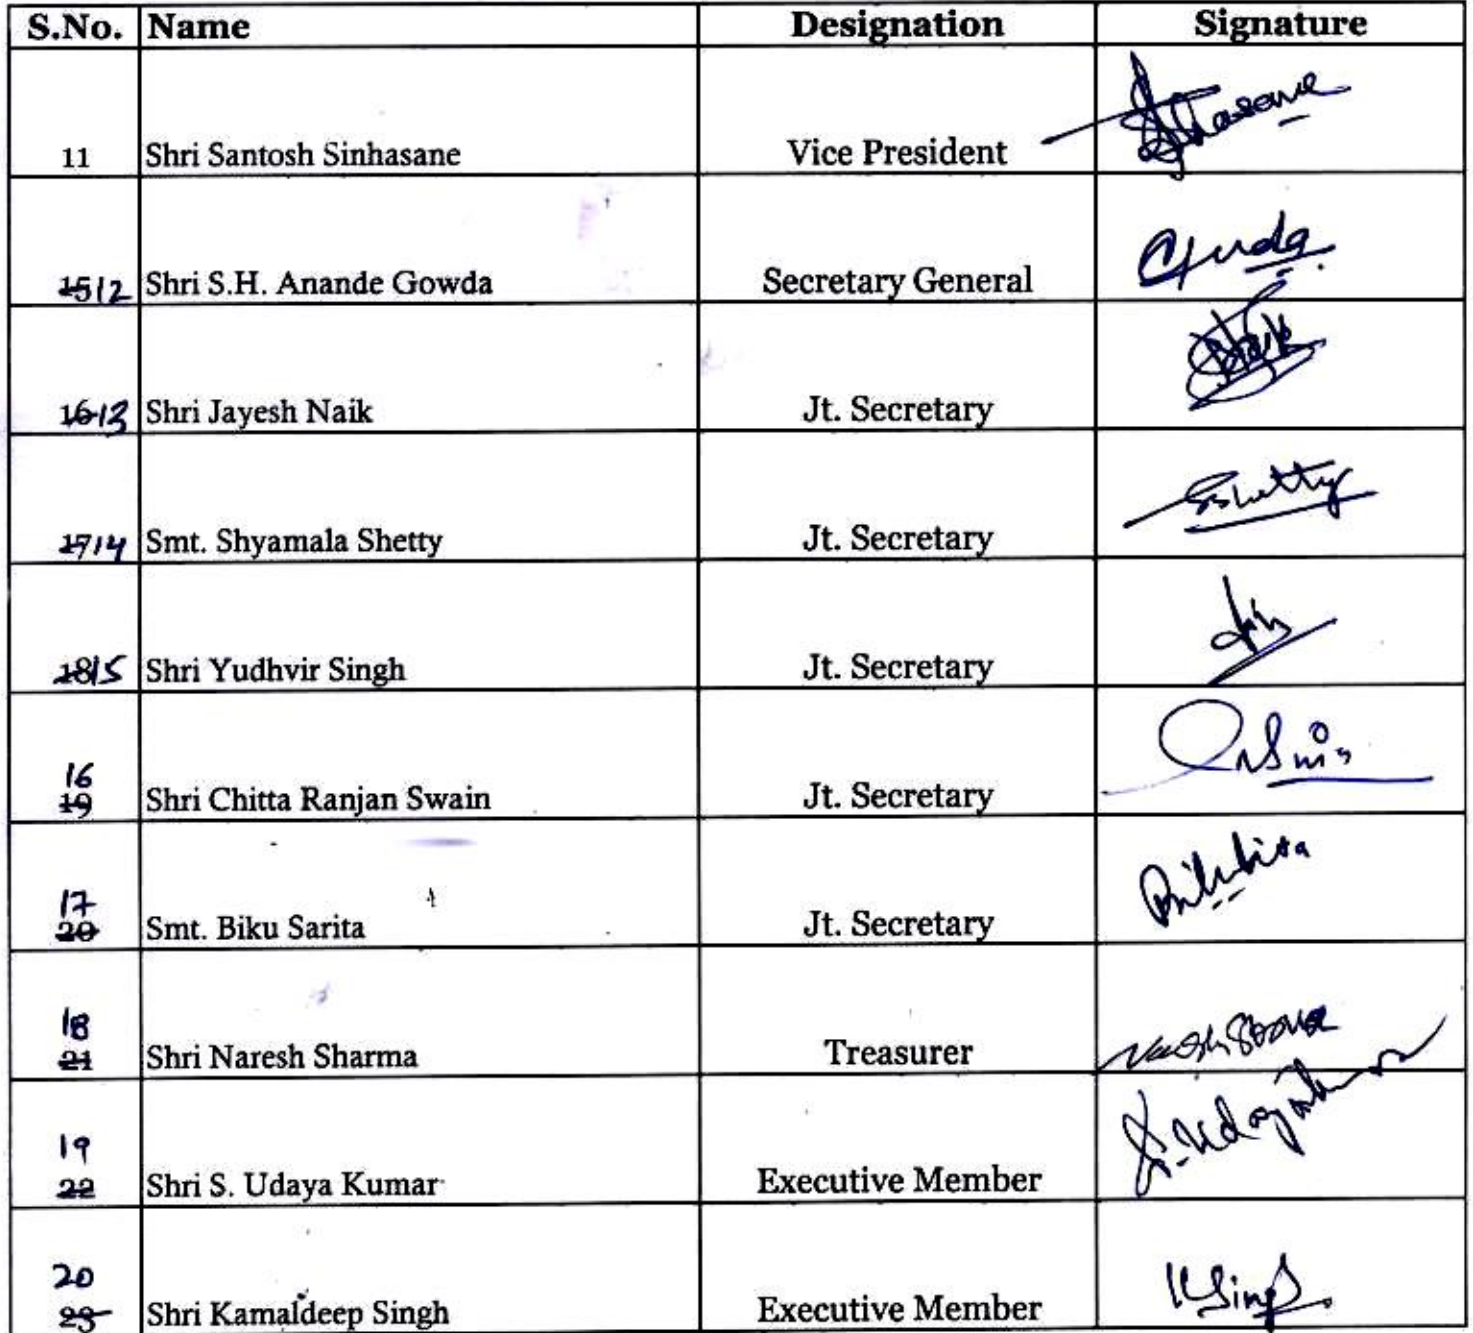 S.No. Name Designation Signature
11 Shri Santosh Sinhasane Vice President
15 12 Shri S.H. Anande Gowda Secretary General
16 13 Shri Jayesh Naik Jt. Secretary
17 14 Smt. Shyamala Shetty Jt. Secretary SShetty
18 15 Shri Yudhvir Singh Jt. Secretary
16
19 Shri Chitta Ranjan Swain Jt. Secretary
17
20 Smt. Biku Sarita Jt. Secretary
18
21 Shri Naresh Sharma Treasurer
19
22 Shri S. Udaya Kumar Executive Member
20
23 Shri Kamaldeep Singh Executive Member KSingh